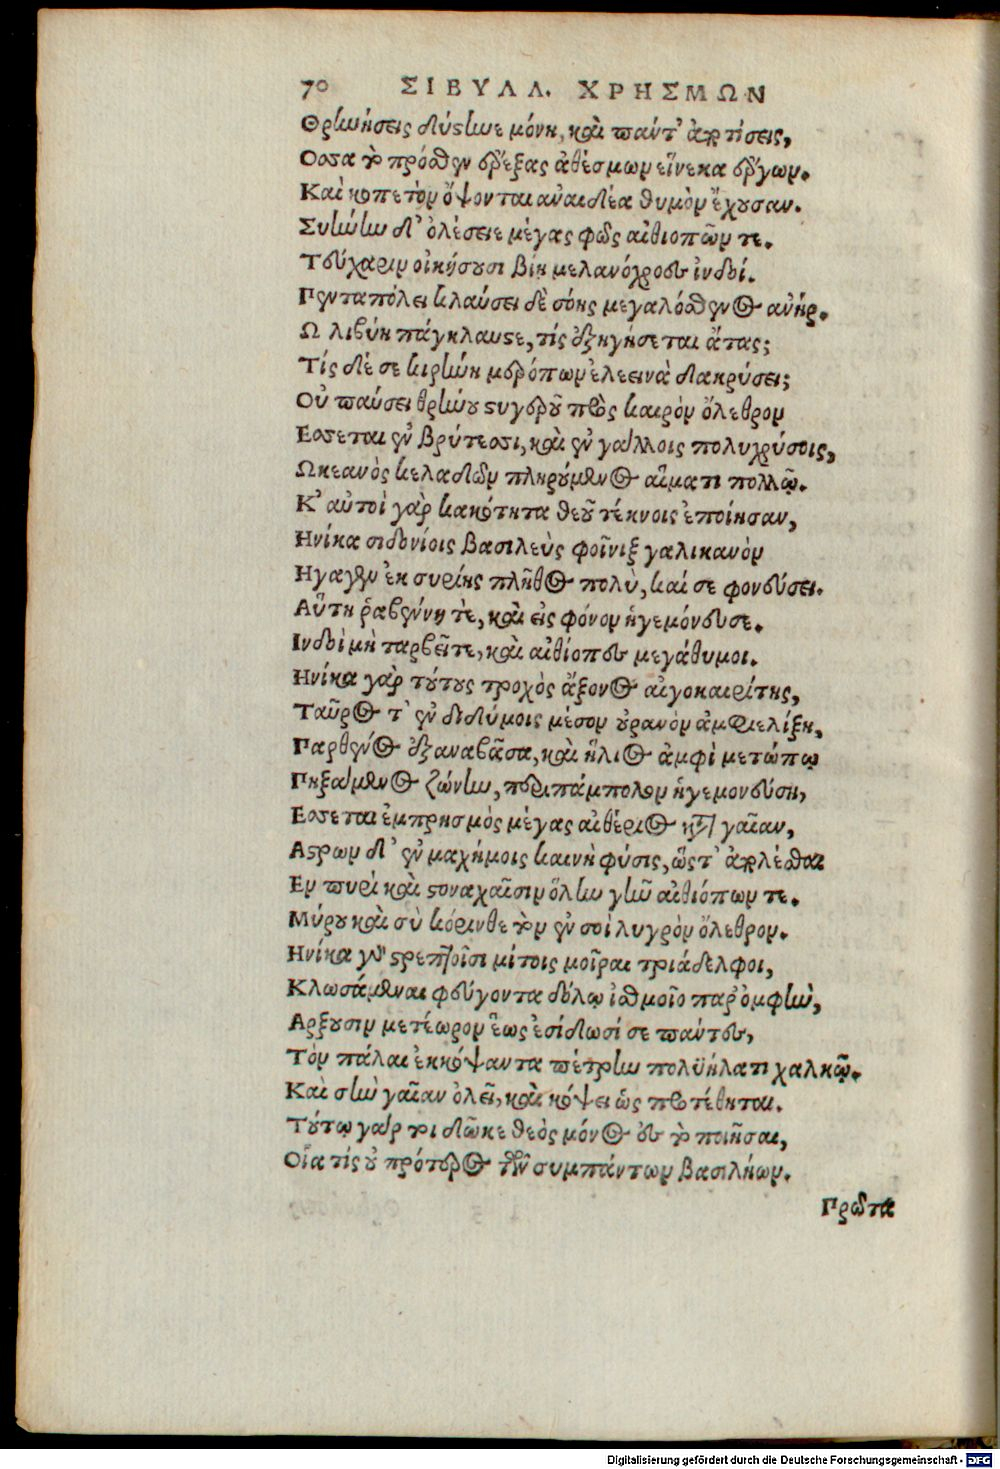 70 ΣΙΒΥΛΛ. ΧΡΗΣΜΩΝ
Θρηνήσεις δύστηνε μόνη, καὶ πάντ' ἀποτίσεις,
Οσσα τὸ πρόσθεν ἔρεξας ἀθέσμων εἵνεκα ἔργων.
Καὶ κοπετὸν ὄψονται ἀναιδέα θυμὸν ἔχουσαν.
Συήνην δ' ὀλέσειε μέγας φὼς αἰθιοπῶν τε.
Τεύχαριν οἰκήσουσι βίῃ μελανόχροες ἰνδοί.
Πεντάπολει κλαύσει δὲ σόης μεγαλόσθενος ἀνήρ.
Ω λιβύη πάγκλαυστε, τίς ἐξηγήσεται ἄτας;
Τίς δέ σε κιρήνη μερόπων ἐλεεινὰ δακρύσει;
Οὐ παύσει θρήνου στυγεροῦ πρὸς καιρὸν ὄλεθρον
Εσσεται ἐν βρύτεσσι, καὶ ἐν γάλλοις πολυχρύσοις,
Ωκεανὸς κελαδῶν πληρούμενος αἵματι πολλῷ.
Κ' αὐτοὶ γὰρ κακότητα θεοῦ τέκνοις ἐποίησαν,
Ηνίκα σιδονίοις βασιλεὺς φοῖνιξ γαλικανὸν
Ηγαγεν ἐκ συρίης πλῆθος πολὺ, καί σε φονεύσει.
Αὕτη ῥαβέννη τὲ, καὶ εἰς φόνον ἡγεμόνευσε.
Ινδοὶ μὴ ταρβεῖτε, καὶ αἰθίοπες μεγάθυμοι.
Ηνίκα γὰρ τούτους τροχὸς ἄξονος αἰγοκαιρίτης,
Ταῦρος τ' ἐν διδύμοις μέσον οὐρανὸν ἀμφιελίξῃ,
Παρθένος ἐξαναβᾶσα, καὶ ἥλιος ἀμφὶ μετώπῳ
Πηξάμενος ζώνην, περιπάμπολον ἡγεμονεύσῃ,
Εσσεται ἐμπρησμὸς μέγας αἰθέριος κατὰ γαῖαν,
Αστρων δ' ἐν μαχήμοις καινὴ φύσις, ὥστ' ἀπολέσθαι
Εν πυρὶ καὶ στοναχαῖσιν ὅλην γῆν αἰθιόπων τε.
Μύρου καὶ σὺ κόρινθε τὸν ἐν σοὶ λυγρὸν ὄλεθρον.
Ηνίκα γὰρ στρεπτοῖσι μίτοις μοῖραι τριάδελφοι,
Κλωσάμεναι φεύγοντα δόλῳ ἰσθμοῖο παρ' ὀμφὴν,
Αρξουσιν μετέωρον ἕως ἐσίδωσί σε πάντες,
Τὸν πάλαι ἐκκόψαντα πέτρην πολϋήλατι χαλκῷ.
Καὶ σὴν γαῖαν ὀλεῖ, καὶ κόψει ὡς προτέθηται.
Τούτῳ γάρ τι δῶκε θεὸς μόνος ἐς τὸ ποιῆσαι,
Οἷα τίς οὐ πρότερος τῶν συμπάντων βασιλήων.
Πρῶτα
Digitalisierung gefördert durch die Deutsche Forschungsgemeinschaft - DFG